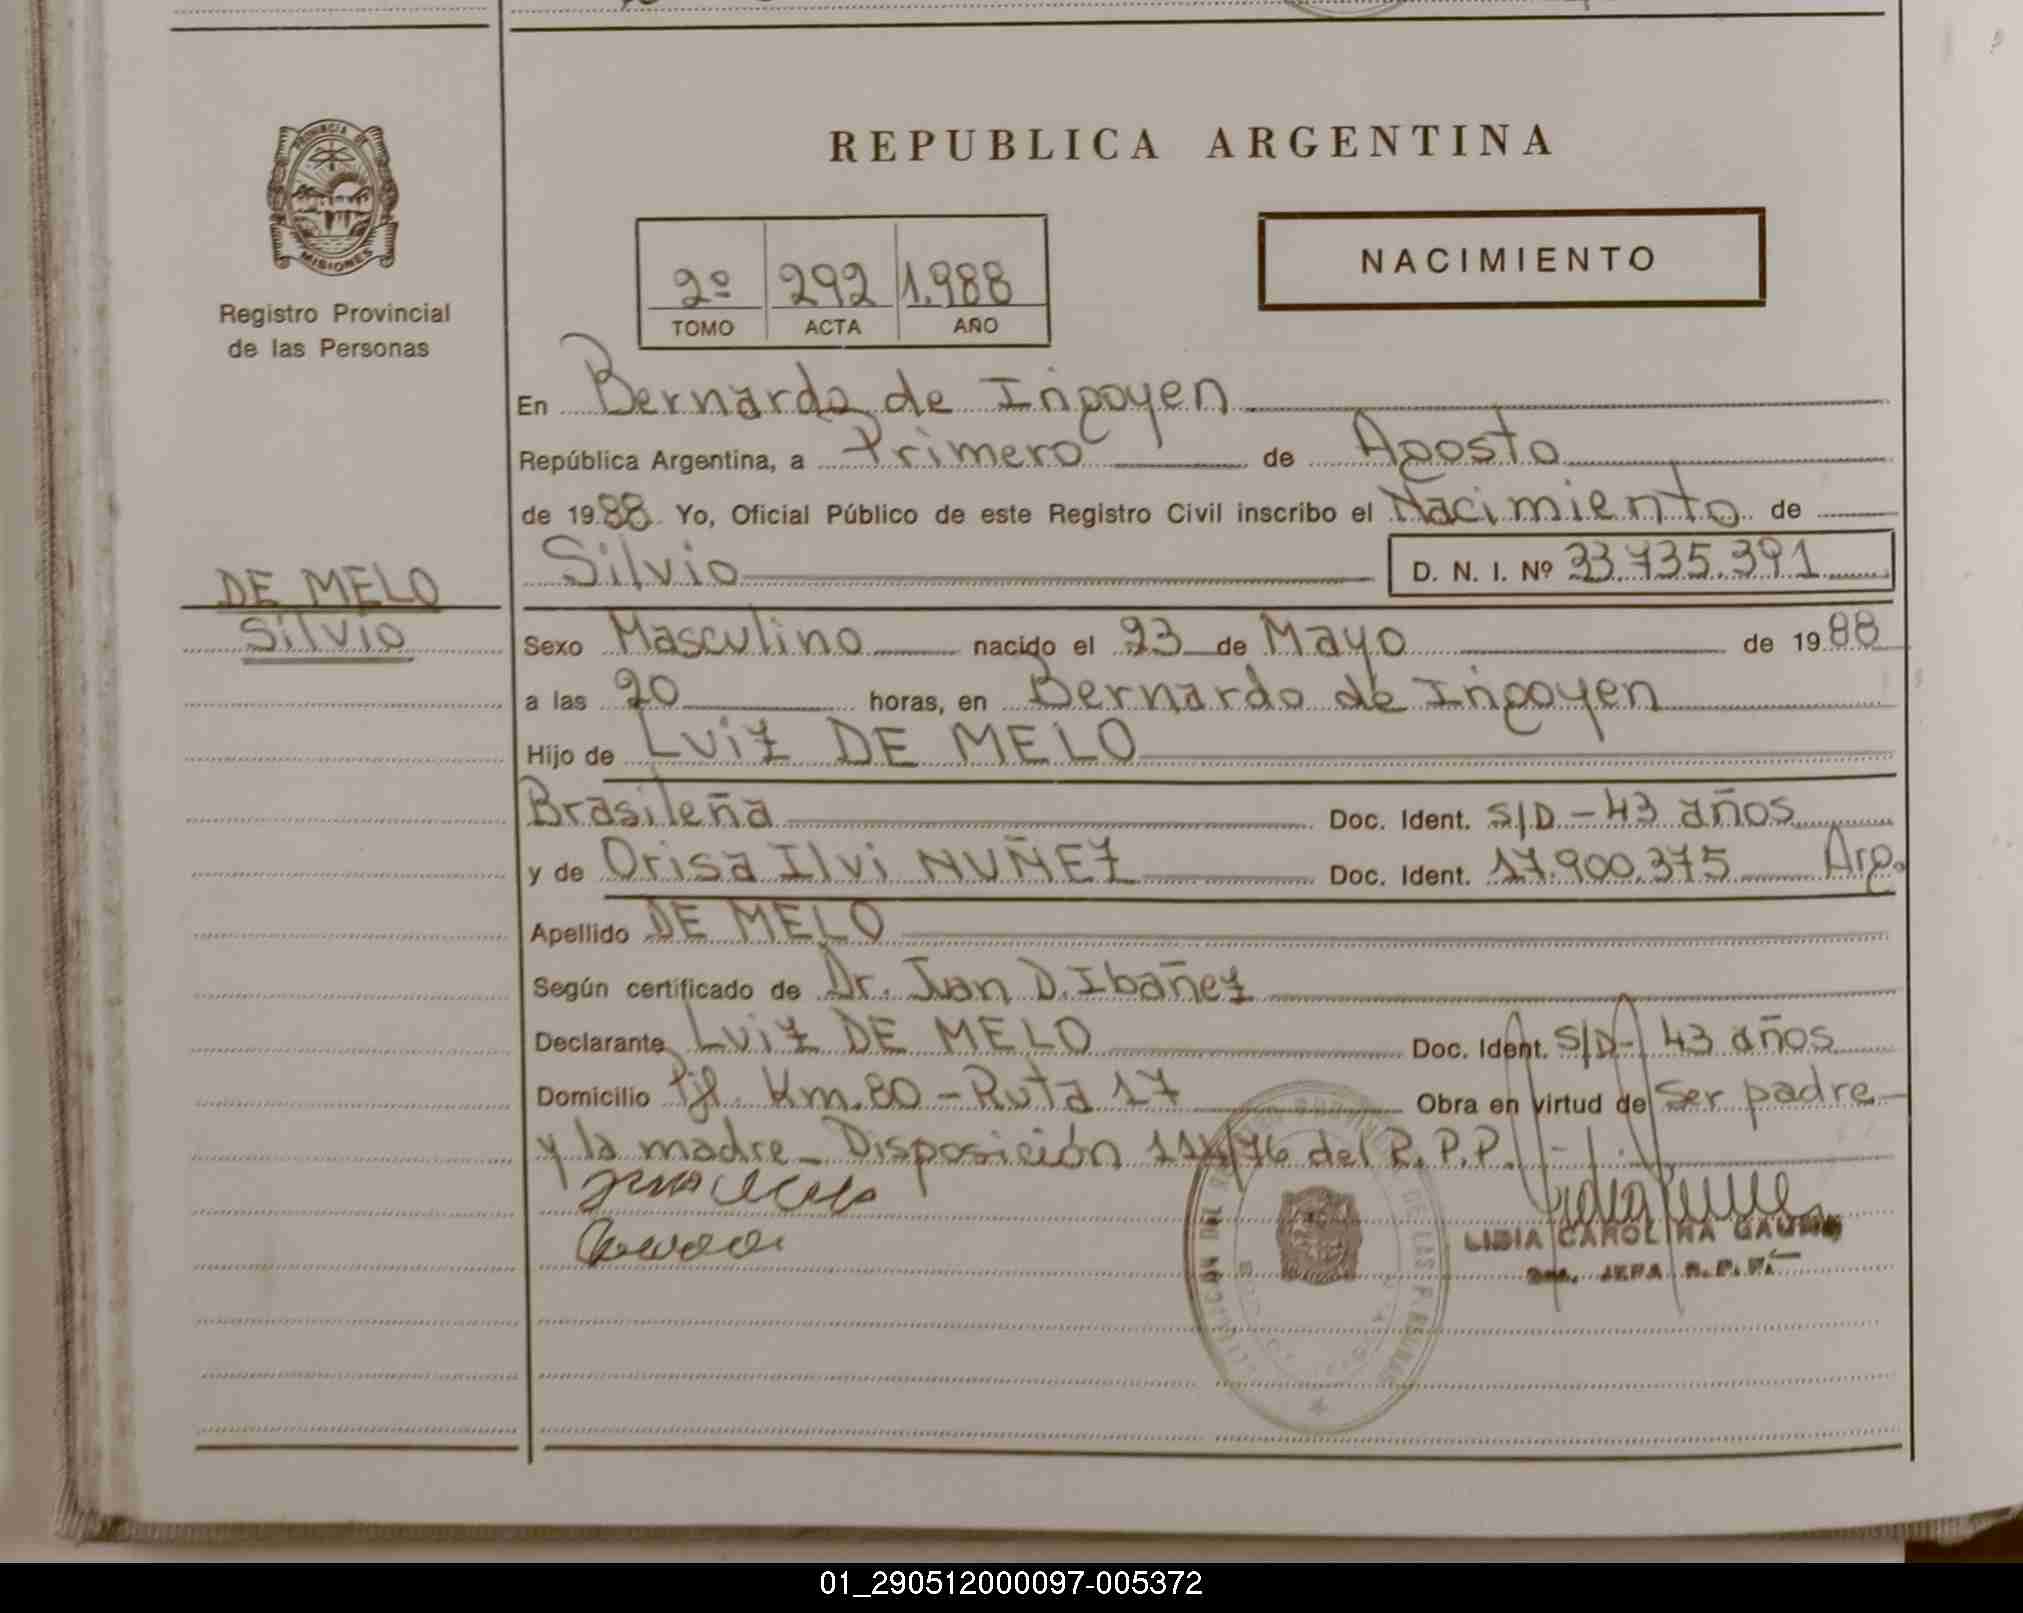 PROVINCIA DE
MISIONES
Registro Provincial
de las Personas
DE MELO
Silvio
REPUBLICA ARGENTINA
2º 292 1.988
TOMO ACTA AÑO
NACIMIENTO
En Bernardo de Irigoyen
República Argentina, a Primero de Agosto
de 1988 Yo, Oficial Público de este Registro Civil inscribo el Nacimiento de
Silvio D. N. I. Nº 33.735.391
Sexo Masculino nacido el 23 de Mayo de 1988
a las 20 horas, en Bernardo de Irigoyen
Hijo de Luiz DE MELO
Brasileña Doc. Ident. S/D - 43 años
y de Orisa Ilvi NUÑEZ Doc. Ident. 17.900.375 Arg.
Apellido DE MELO
Según certificado de Dr. Juan D. Ibañez
Declarante Luiz DE MELO Doc. Ident. S/D- 43 años
Domicilio Pje. Km. 80 - Ruta 17 Obra en virtud de Ser padre
y la madre - Disposición /76 del R.P.P.
LIDIA CAROLINA
JEFA R.P.P.
DE LAS PERSONAS
01_290512000097-005372